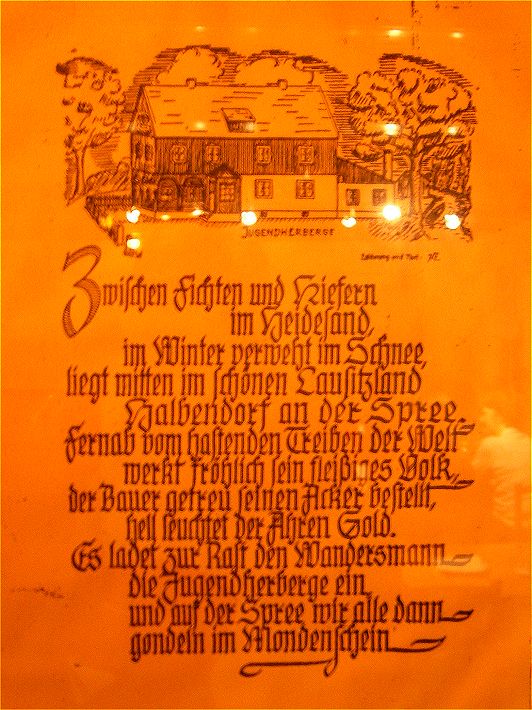 JUGENDHERBERGE
Zeichnung und Text
Zwischen Fichten und Kiefern
im Heidesand,
im Winter verweht im Schnee,
liegt mitten im schönen Lausitzland
Halbendorf an der Spree.
Fernab vom hastenden Treiben der Welt
werkt fröhlich sein fleißiges Volk,
der Bauer getreu seinen Acker bestellt,
hell leuchtet der Ähren Gold.
Es ladet zur Rast den Wandersmann
die Jugendherberge ein,
und auf der Spree wir alle dann
gondeln im Mondenschein